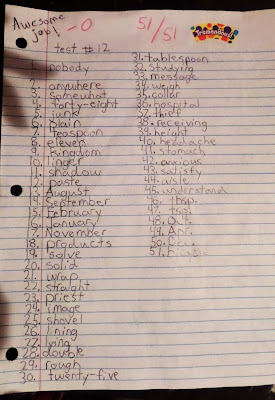 Awesome job!
-0
51/51
Tremendous!
test #12
1. nobody
2. anywhere
3. somewhat
4. forty-eight
5. junk
6. plain
7. teaspoon
8. eleven
9. kingdom
10. linger
11. shadow
12. paste
13. August
14. September
15. February
16. January
17. November
18. products
19. salve
20. solid
21. wrap
22. straight
23. priest
24. image
25. shovel
26. lining
27. lying
28. double
29. rough
30. twenty-five
31. tablespoon
32. studying
33. message
34. weigh
35. collar
36. hospital
37. thief
38. receiving
39. height
40. headache
41. stomach
42. anxious
43. satisfy
44. aisle
45. understand
46. tbsp.
47. tsp.
48. Oct.
49. Apr.
50.
51.